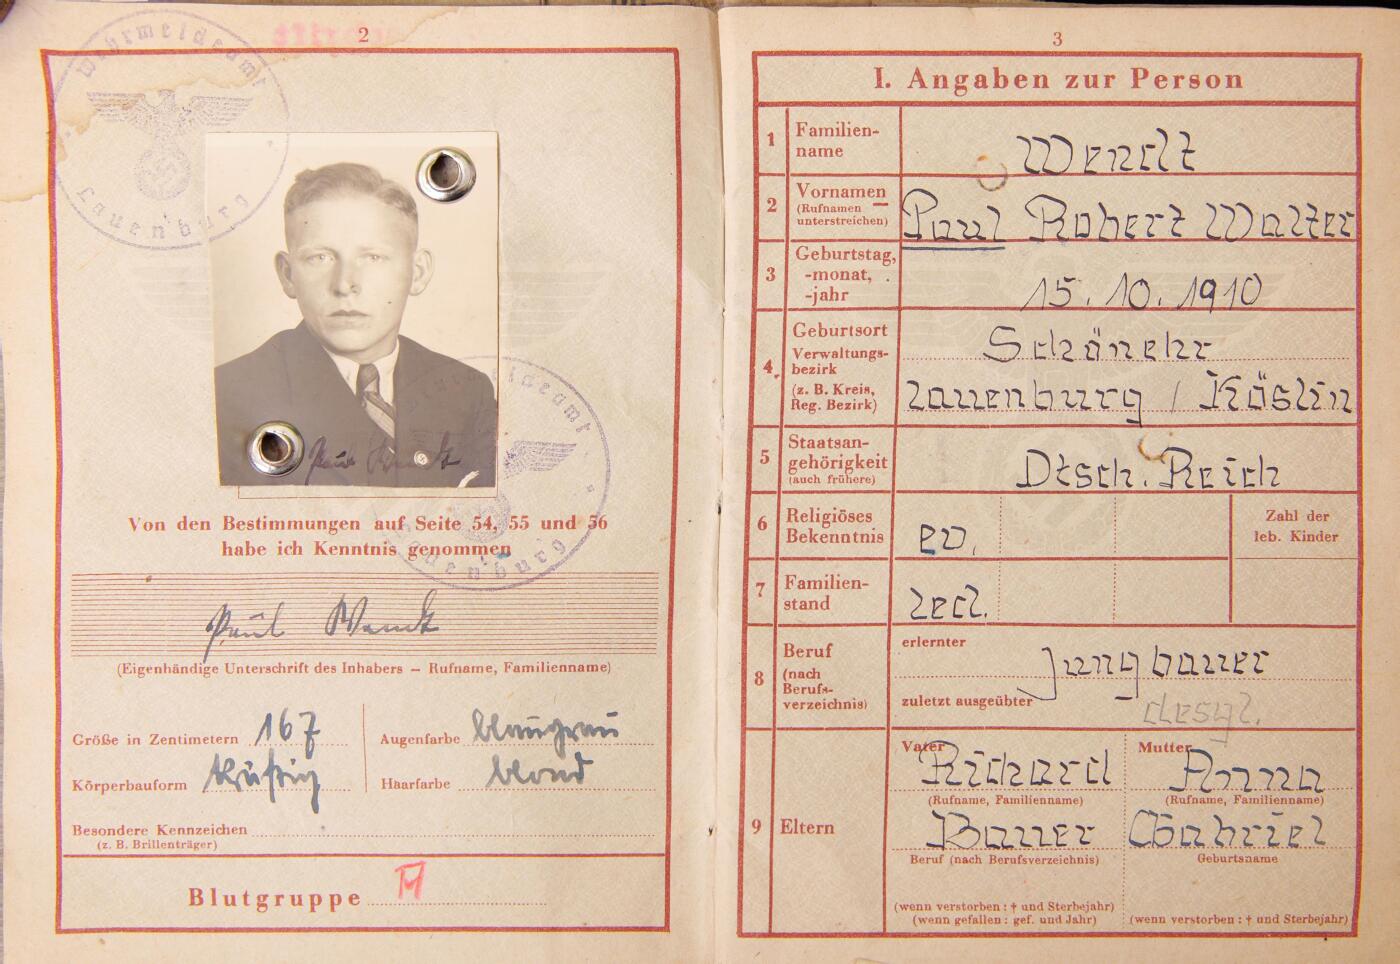 2
Wehrmeldeamt
Lauenburg
Paul Wendt
Wehrmeldeamt
Lauenburg
Von den Bestimmungen auf Seite 54, 55 und 56
habe ich Kenntnis genommen
Paul Wendt
(Eigenhändige Unterschrift des Inhabers – Rufname, Familienname)
Größe in Zentimetern 167 Augenfarbe blaugrau
Körperbauform kräftig Haarfarbe blond
Besondere Kennzeichen
(z. B. Brillenträger)
Blutgruppe A
3
I. Angaben zur Person
1 Familien-
name
Wendt
2 Vornamen
(Rufnamen
unterstreichen)
Paul Robert Walter
3 Geburtstag,
-monat,
-jahr
15. 10. 1910
4 Geburtsort
Verwaltungs-
bezirk
(z. B. Kreis,
Reg. Bezirk)
Schönehr
Lauenburg / Köslin
5 Staatsan-
gehörigkeit
(auch frühere)
Dtsch. Reich
6 Religiöses
Bekenntnis
ev.
Zahl der
leb. Kinder
7 Familien-
stand
led.
8 Beruf
(nach
Berufs-
verzeichnis)
erlernter
Jungbauer
zuletzt ausgeübter
desgl.
9 Eltern
Vater
Richard
(Rufname, Familienname)
Bauer
Beruf (nach Berufsverzeichnis)
(wenn verstorben: † und Sterbejahr)
(wenn gefallen: gef. und Jahr)
Mutter
Anna
(Rufname, Familienname)
Gabriel
Geburtsname
(wenn verstorben: † und Sterbejahr)